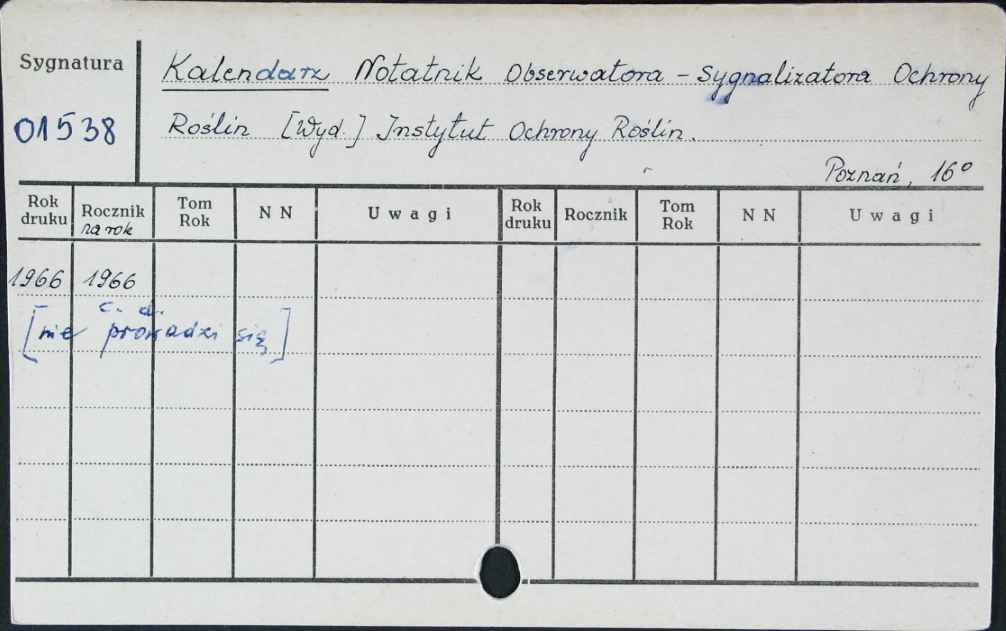 Sygnatura
01538
Kalendarz Notatnik Obserwatora - Sygnalizatora Ochrony
Roślin [Wyd.] Instytut Ochrony Roślin.
Poznań, 16°
Rok druku Rocznik na rok Tom Rok N N Uwagi Rok druku Rocznik Tom Rok N N Uwagi
1966 1966
c. d.
[nie prowadzi się]